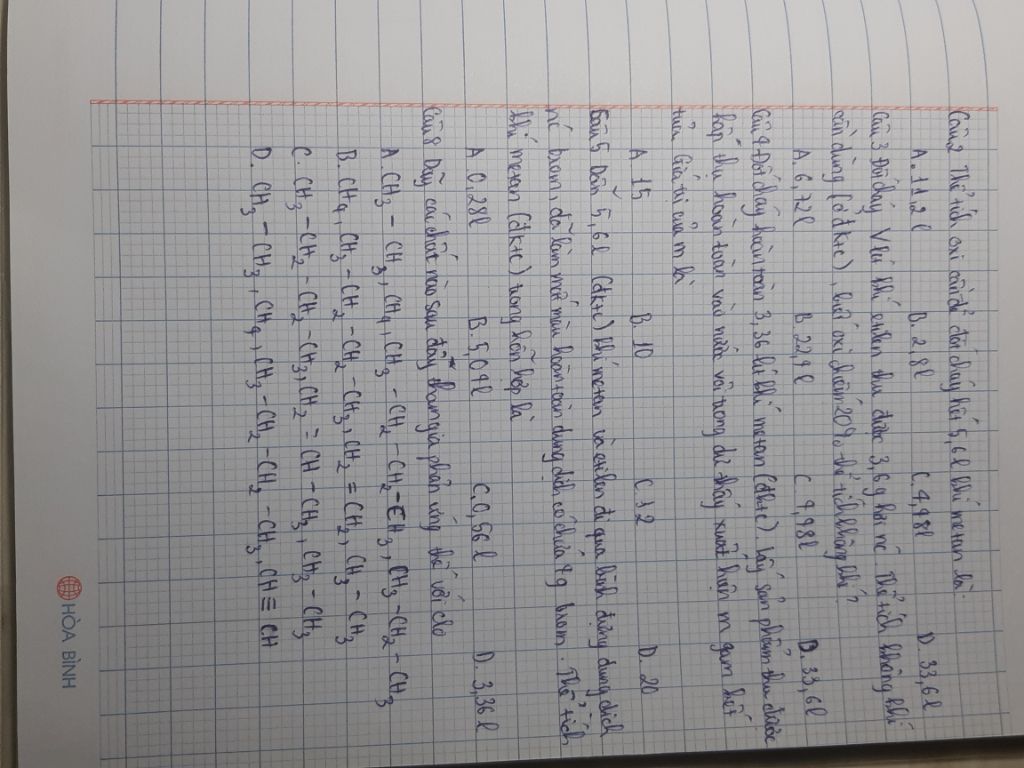 Câu 2 Thể tích oxi cần để đốt cháy hết 5,6 l khí metan là:
A. 11,2 l B. 2,8 l C. 4,48 l D. 33,6 l
Câu 3 Đốt cháy V lít khí etilen thu được 3,6 g hơi nc. Thể tích không khí
cần dùng (đktc), biết oxi chiếm 20% thể tích không khí?
A. 6,72 l B. 22,4 l C. 4,48 l D. 33,6 l
Câu 4 Đốt cháy hoàn toàn 3,36 lít khí metan (đktc). Lấy sản phẩm thu được
hấp thụ hoàn toàn vào nước vôi trong dư thấy xuất hiện m gam kết
tủa Giá trị của m là
A 15 B. 10 C. 12 D. 20
Câu 5 Dẫn 5,6 l (đktc) khí metan và etilen đi qua bình đựng dung dịch
nc brom, đã làm mất màu hoàn toàn dung dịch có chứa 4 g brom. Thể tích
khí metan (đktc) trong hỗn hợp là
A. 0,28 l B. 5,04 l C. 0,56 l D. 3,36 l
Câu 8 Dãy các chất nào sau đây tham gia phản ứng thế với clo
A. CH3 - CH3, CH4, CH3 - CH2 - CH2 - CH3, CH3 - CH2 - CH3
B. CH4, CH3 - CH2 - CH2 - CH3, CH2 = CH2, CH3 - CH3
C. CH3 - CH2 - CH2 - CH3, CH2 = CH - CH3, CH3 - CH3
D. CH3 - CH3, CH4, CH3 - CH2 - CH2 - CH3, CH ≡ CH
HÒA BÌNH